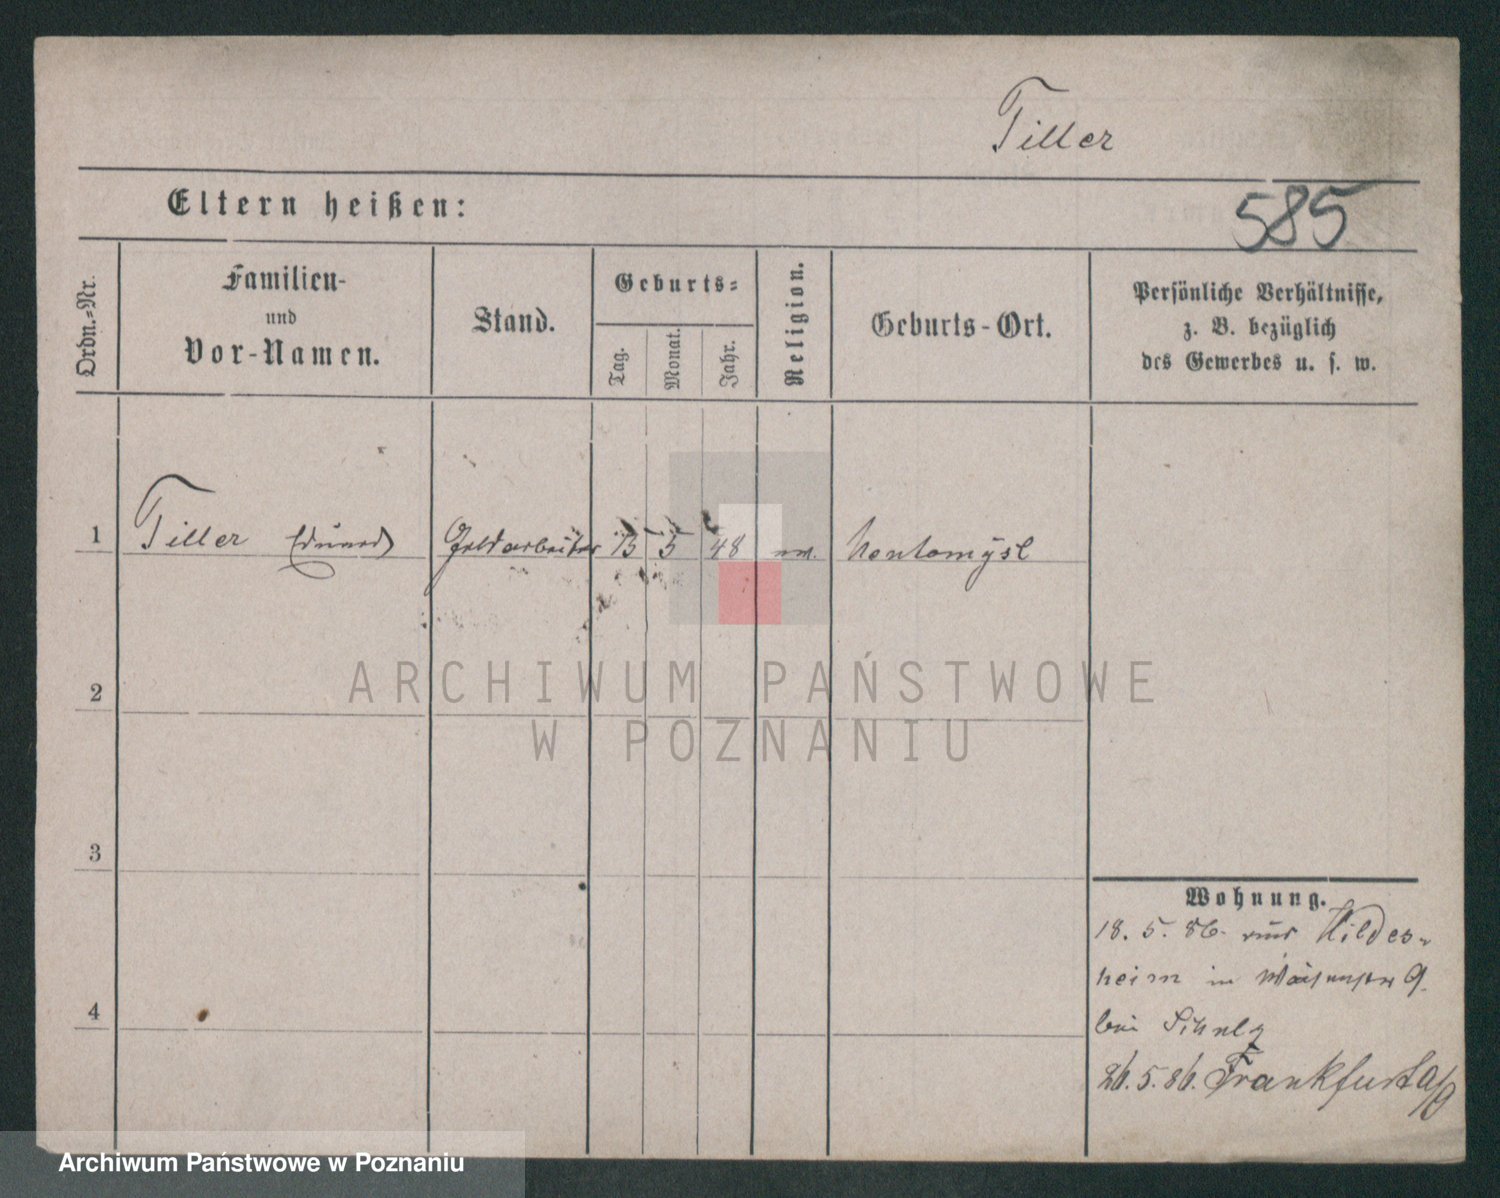 Tiller
Eltern heißen:
585
Ordn.-Nr.
Familien-
und
Vor-Namen.
Stand.
Geburts-
Tag.
Monat.
Jahr.
Religion.
Geburts-Ort.
Persönliche Verhältnisse,
z. B. bezüglich
des Gewerbes u. s. w.
1 Tiller Eduard 5 48
2
3
4
Wohnung.
18. 5. 86. aus Hildes-
heim in 9.
bei
26. 5. 86. Frankfurt a/O
ARCHIWUM PAŃSTWOWE
W POZNANIU
Archiwum Państwowe w Poznaniu